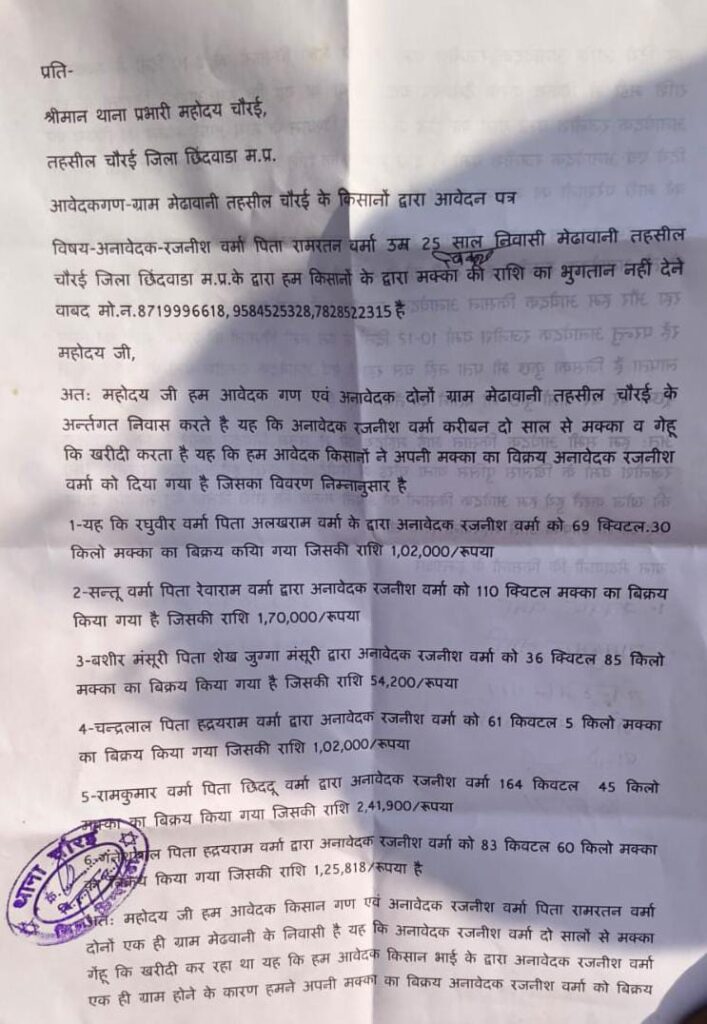 प्रति-
श्रीमान थाना प्रभारी महोदय चौरई,
तहसील चौरई जिला छिंदवाडा म.प्र.
आवेदकगण-ग्राम मेढावानी तहसील चौरई के किसानों द्वारा आवेदन पत्र
विषय-अनावेदक-रजनीश वर्मा पिता रामरतन वर्मा उम्र 25 साल निवासी मेढावानी तहसील
चौरई जिला छिंदवाडा म.प्र.के द्वारा हम किसानों के द्वारा मक्का की राशि का भुगतान नहीं देने
वाबद मो.न.8719996618, 9584525328,7828522315 है
महोदय जी,
अतः महोदय जी हम आवेदक गण एवं अनावेदक दोनों ग्राम मेढावानी तहसील चौरई के
अर्न्तगत निवास करते है यह कि अनावेदक रजनीश वर्मा करीबन दो साल से मक्का व गेहू
कि खरीदी करता है यह कि हम आवेदक किसानों ने अपनी मक्का का विक्रय अनावेदक रजनीश
वर्मा को दिया गया है जिसका विवरण निम्नानुसार है
1-यह कि रघुवीर वर्मा पिता अलखराम वर्मा के द्वारा अनावेदक रजनीश वर्मा को 69 क्विटल.30
किलो मक्का का बिक्रय कयिा गया जिसकी राशि 1,02,000/रूपया
2-सन्तू वर्मा पिता रेवाराम वर्मा द्वारा अनावेदक रजनीश वर्मा को 110 क्विटल मक्का का बिक्रय
किया गया है जिसकी राशि 1,70,000/रूपया
3-बशीर मंसूरी पिता शेख जुग्गा मंसूरी द्वारा अनावेदक रजनीश वर्मा को 36 क्विटल 85 किलो
मक्का का बिक्रय किया गया है जिसकी राशि 54,200/रूपया
4-चन्द्रलाल पिता ह्रदयराम वर्मा द्वारा अनावेदक रजनीश वर्मा को 61 किवटल 5 किलो मक्का
का बिक्रय किया गया जिसकी राशि 1,02,000/रूपया
5-रामकुमार वर्मा पिता छिददू वर्मा द्वारा अनावेदक रजनीश वर्मा 164 किवटल 45 किलो
मक्का का बिक्रय किया गया जिसकी राशि 2,41,900/रूपया
पिता ह्रदयराम वर्मा द्वारा अनावेदक रजनीश वर्मा को 83 किवटल 60 किलो मक्का
का बिक्रय किया गया जिसकी राशि 1,25,818/रूपया है
थाना चौरई
अतः महोदय जी हम आवेदक किसान गण एवं अनावेदक रजनीश वर्मा पिता रामरतन वर्मा
दोनों एक ही ग्राम मेढवानी के निवासी है यह कि अनावेदक रजनीश वर्मा दो सालों से मक्का
गेंहू कि खरीदी कर रहा था यह कि हम आवेदक किसान भाई के द्वारा अनावेदक रजनीश वर्मा
एक ही ग्राम होने के कारण हमने अपनी मक्का का बिक्रय अनावेदक रजनीश वर्मा को बिक्रय